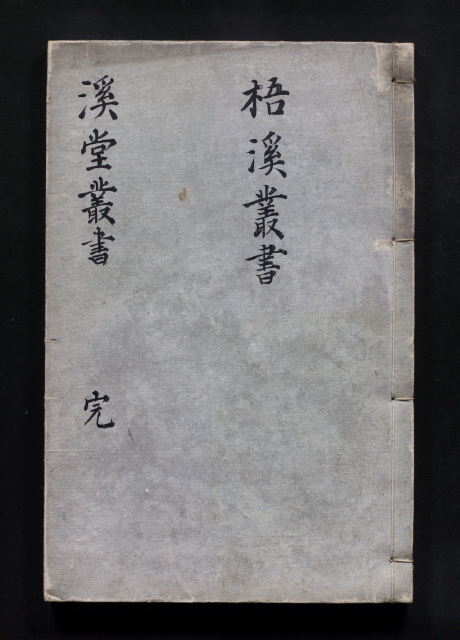 梧溪叢書
溪堂叢書 完